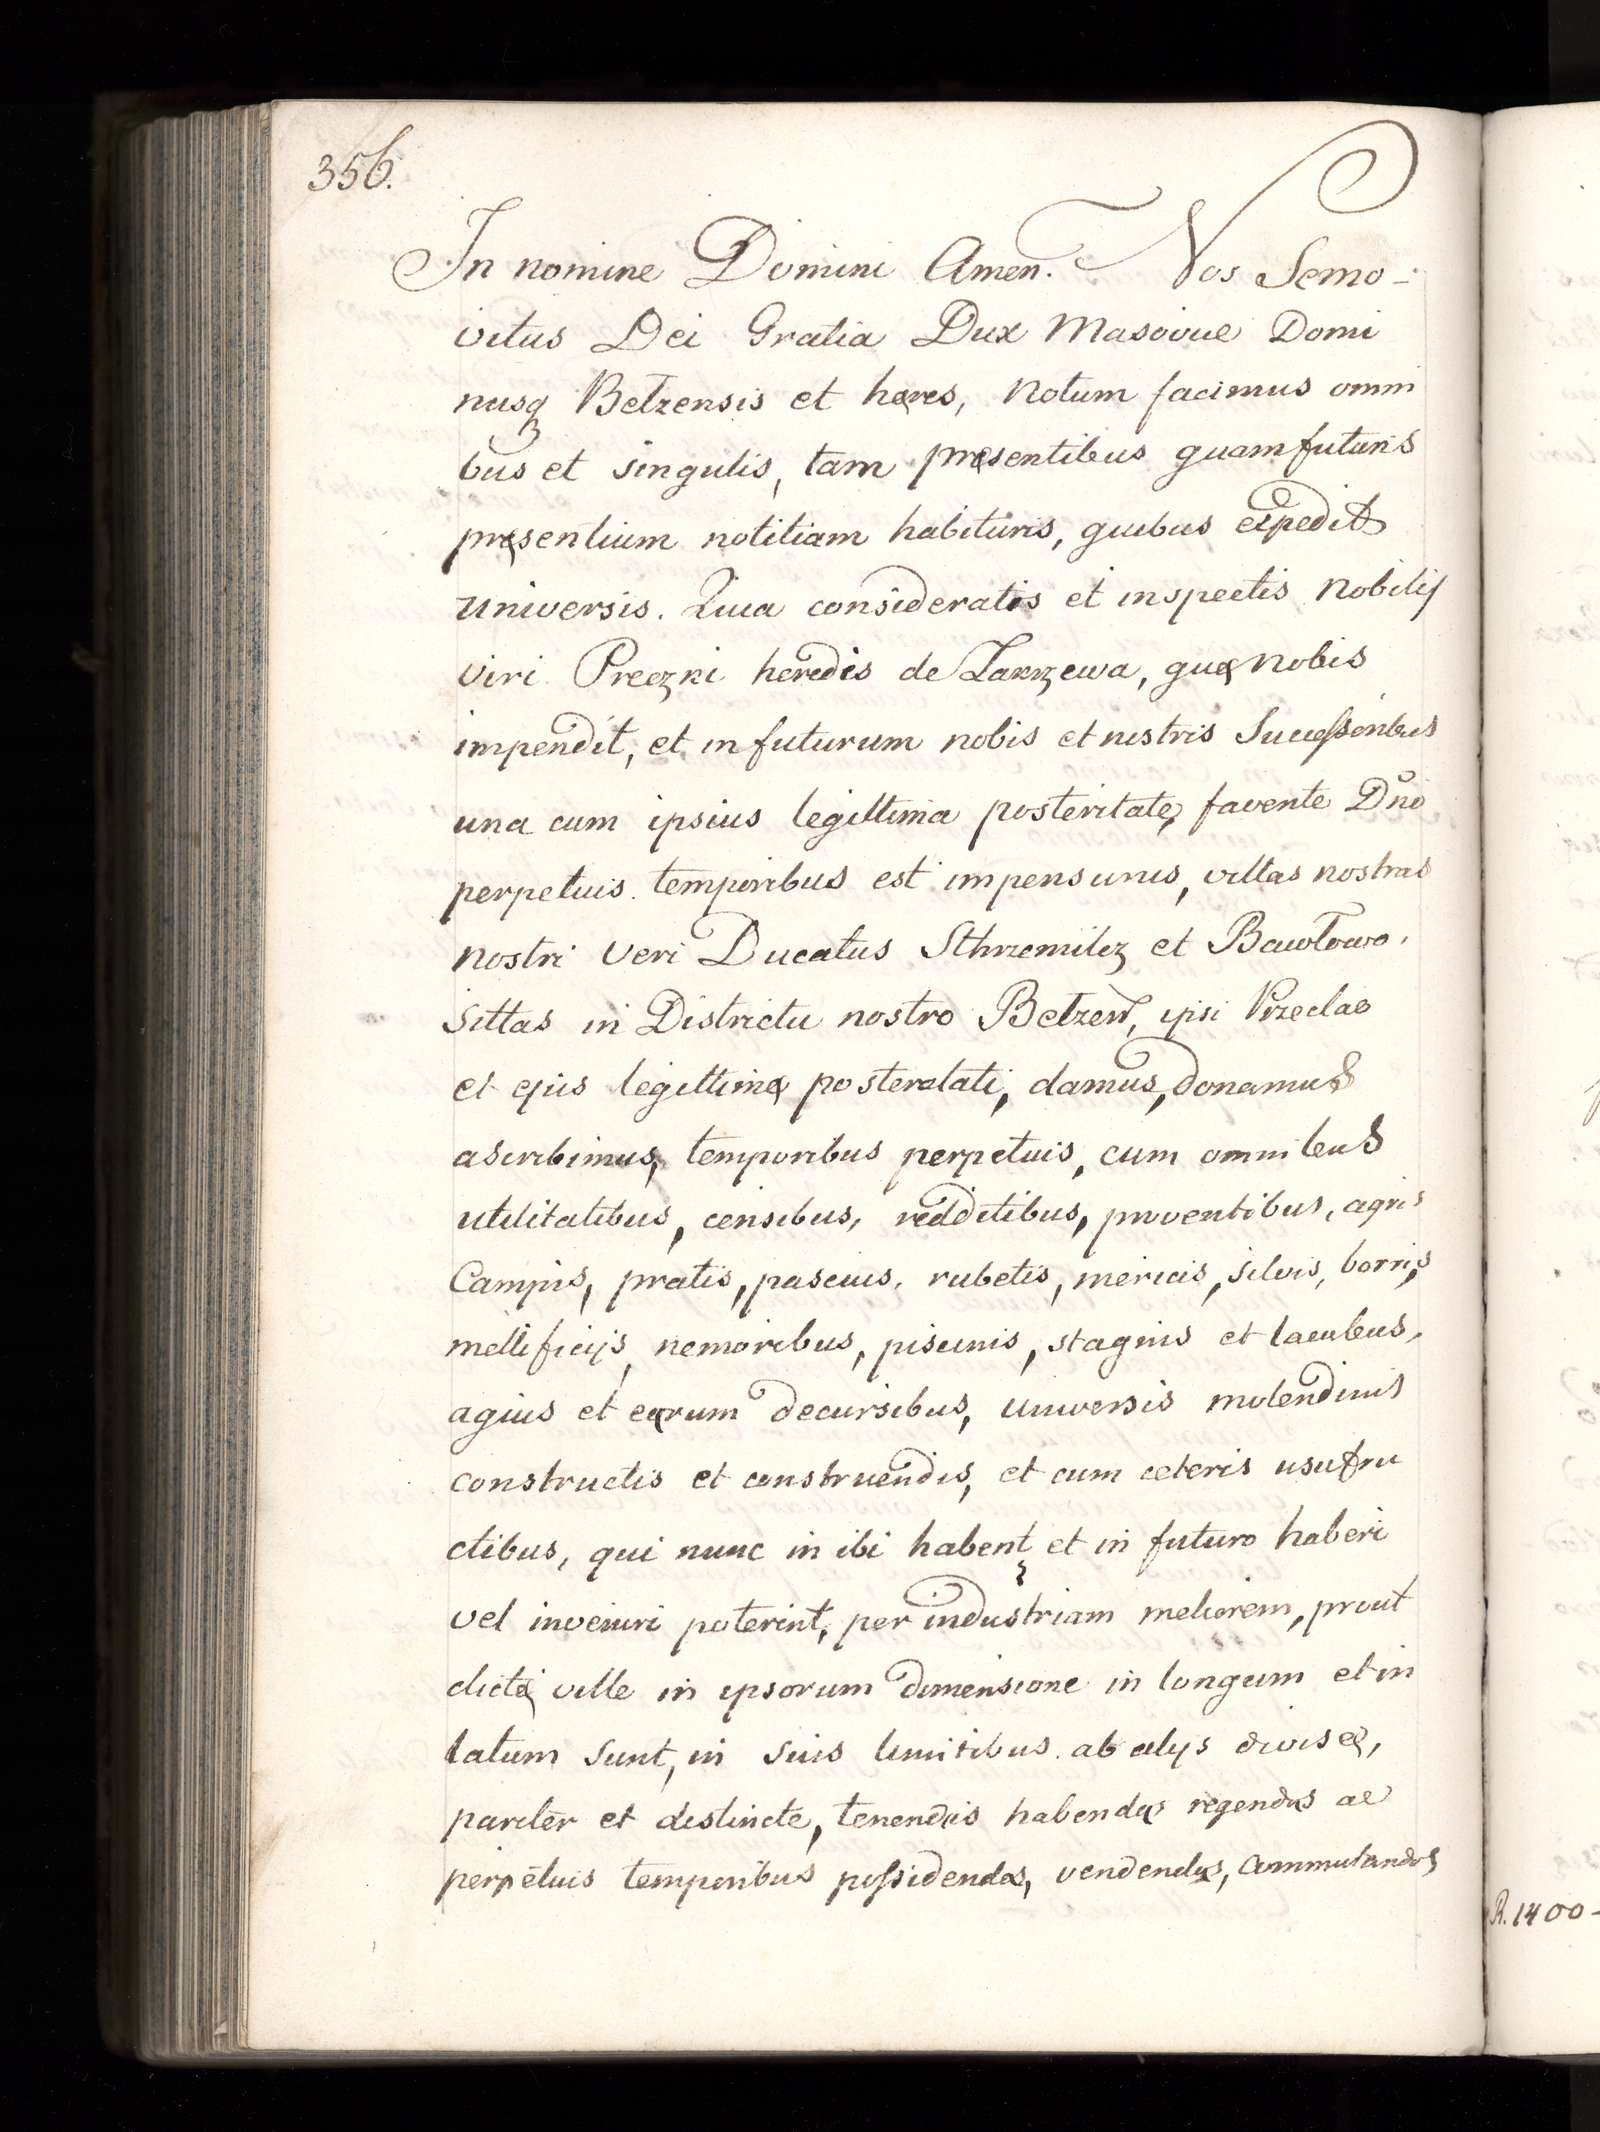 356.
In nomine Domini Amen. Nos Semo-
vitus Dei Gratia Dux Masovie Domi
nusq Betzensis et heres, Notum facimus omni
bus et singulis, tam pręsentibus quam futuris
pręsentium notitiam habituris, quibus expedit
universis. Quia consideratis et inspectis Nobilis
viri Preczki heredis de Zakrzewa, quę nobis
impendit, et in futurum nobis et nostris Successoribus
una cum ipsius legittima posteritate, favente Dno
perpetuis temporibus est impensurus, villas nostras
nostri veri Ducatus Sthrzemilcz et Bawłowo,
sittas in Districtu nostro Betzen, ipsi Przeclao
et ejus legittimę posteratati, damus, donamus
ascribimus, temporibus perpetuis, cum omnibus
utilitatibus, censibus, redditibus, proventibus, agris
Campis, pratis, pascuis, rubetis, mericis, silvis, borris,
mellificijs, nemoribus, piscinis, stagnis et lacubus,
aquis et earum decursibus, universis molendinis
constructis et construendis, et cum ceteris usufru
ctibus, qui nunc in ibi habent et in futuro haberi
vel inveniri poterint, per industriam meliorem, prout
dictę ville in ipsorum dimensione in longum et in
latum sunt, in suis limitibus ab alijs divisę,
pariter et distincte, tenendas habendas regendas ac
perpetuis temporibus possidendas, vendendas, commutandas
R. 1400-